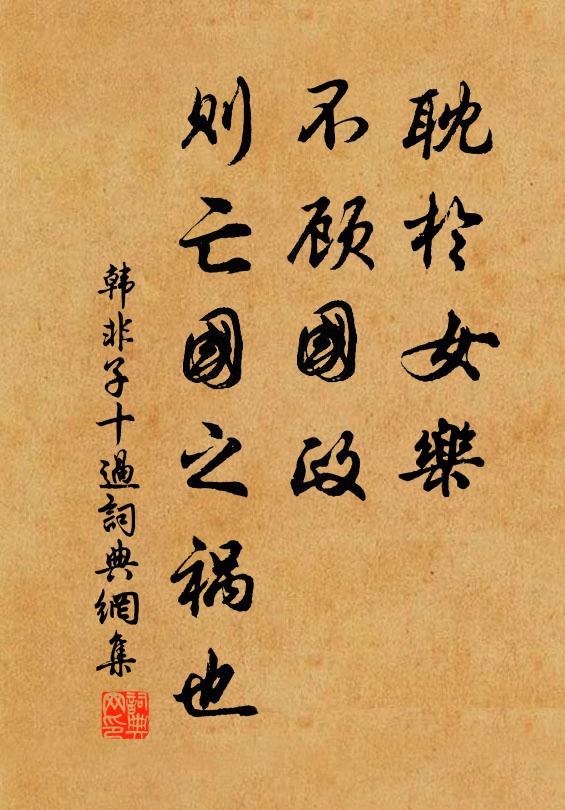 耽於女樂
不顾國政
则亡國之禍也
韩非子十過詞典網集
詞典
网印